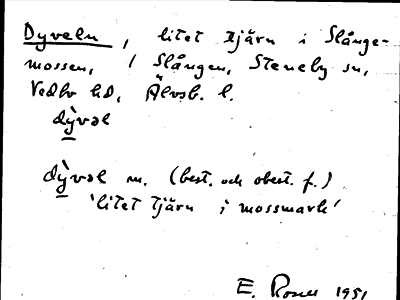 Dyveln, litet tjärn i Slånge-
mossen, / Slången, Steneby sn,
Vedbo hd, Älvsb. l.
dỳvəl
dỳvəl m. (best. och obest. f.)
'litet tjärn i mossmark'
E. Rosell 1951